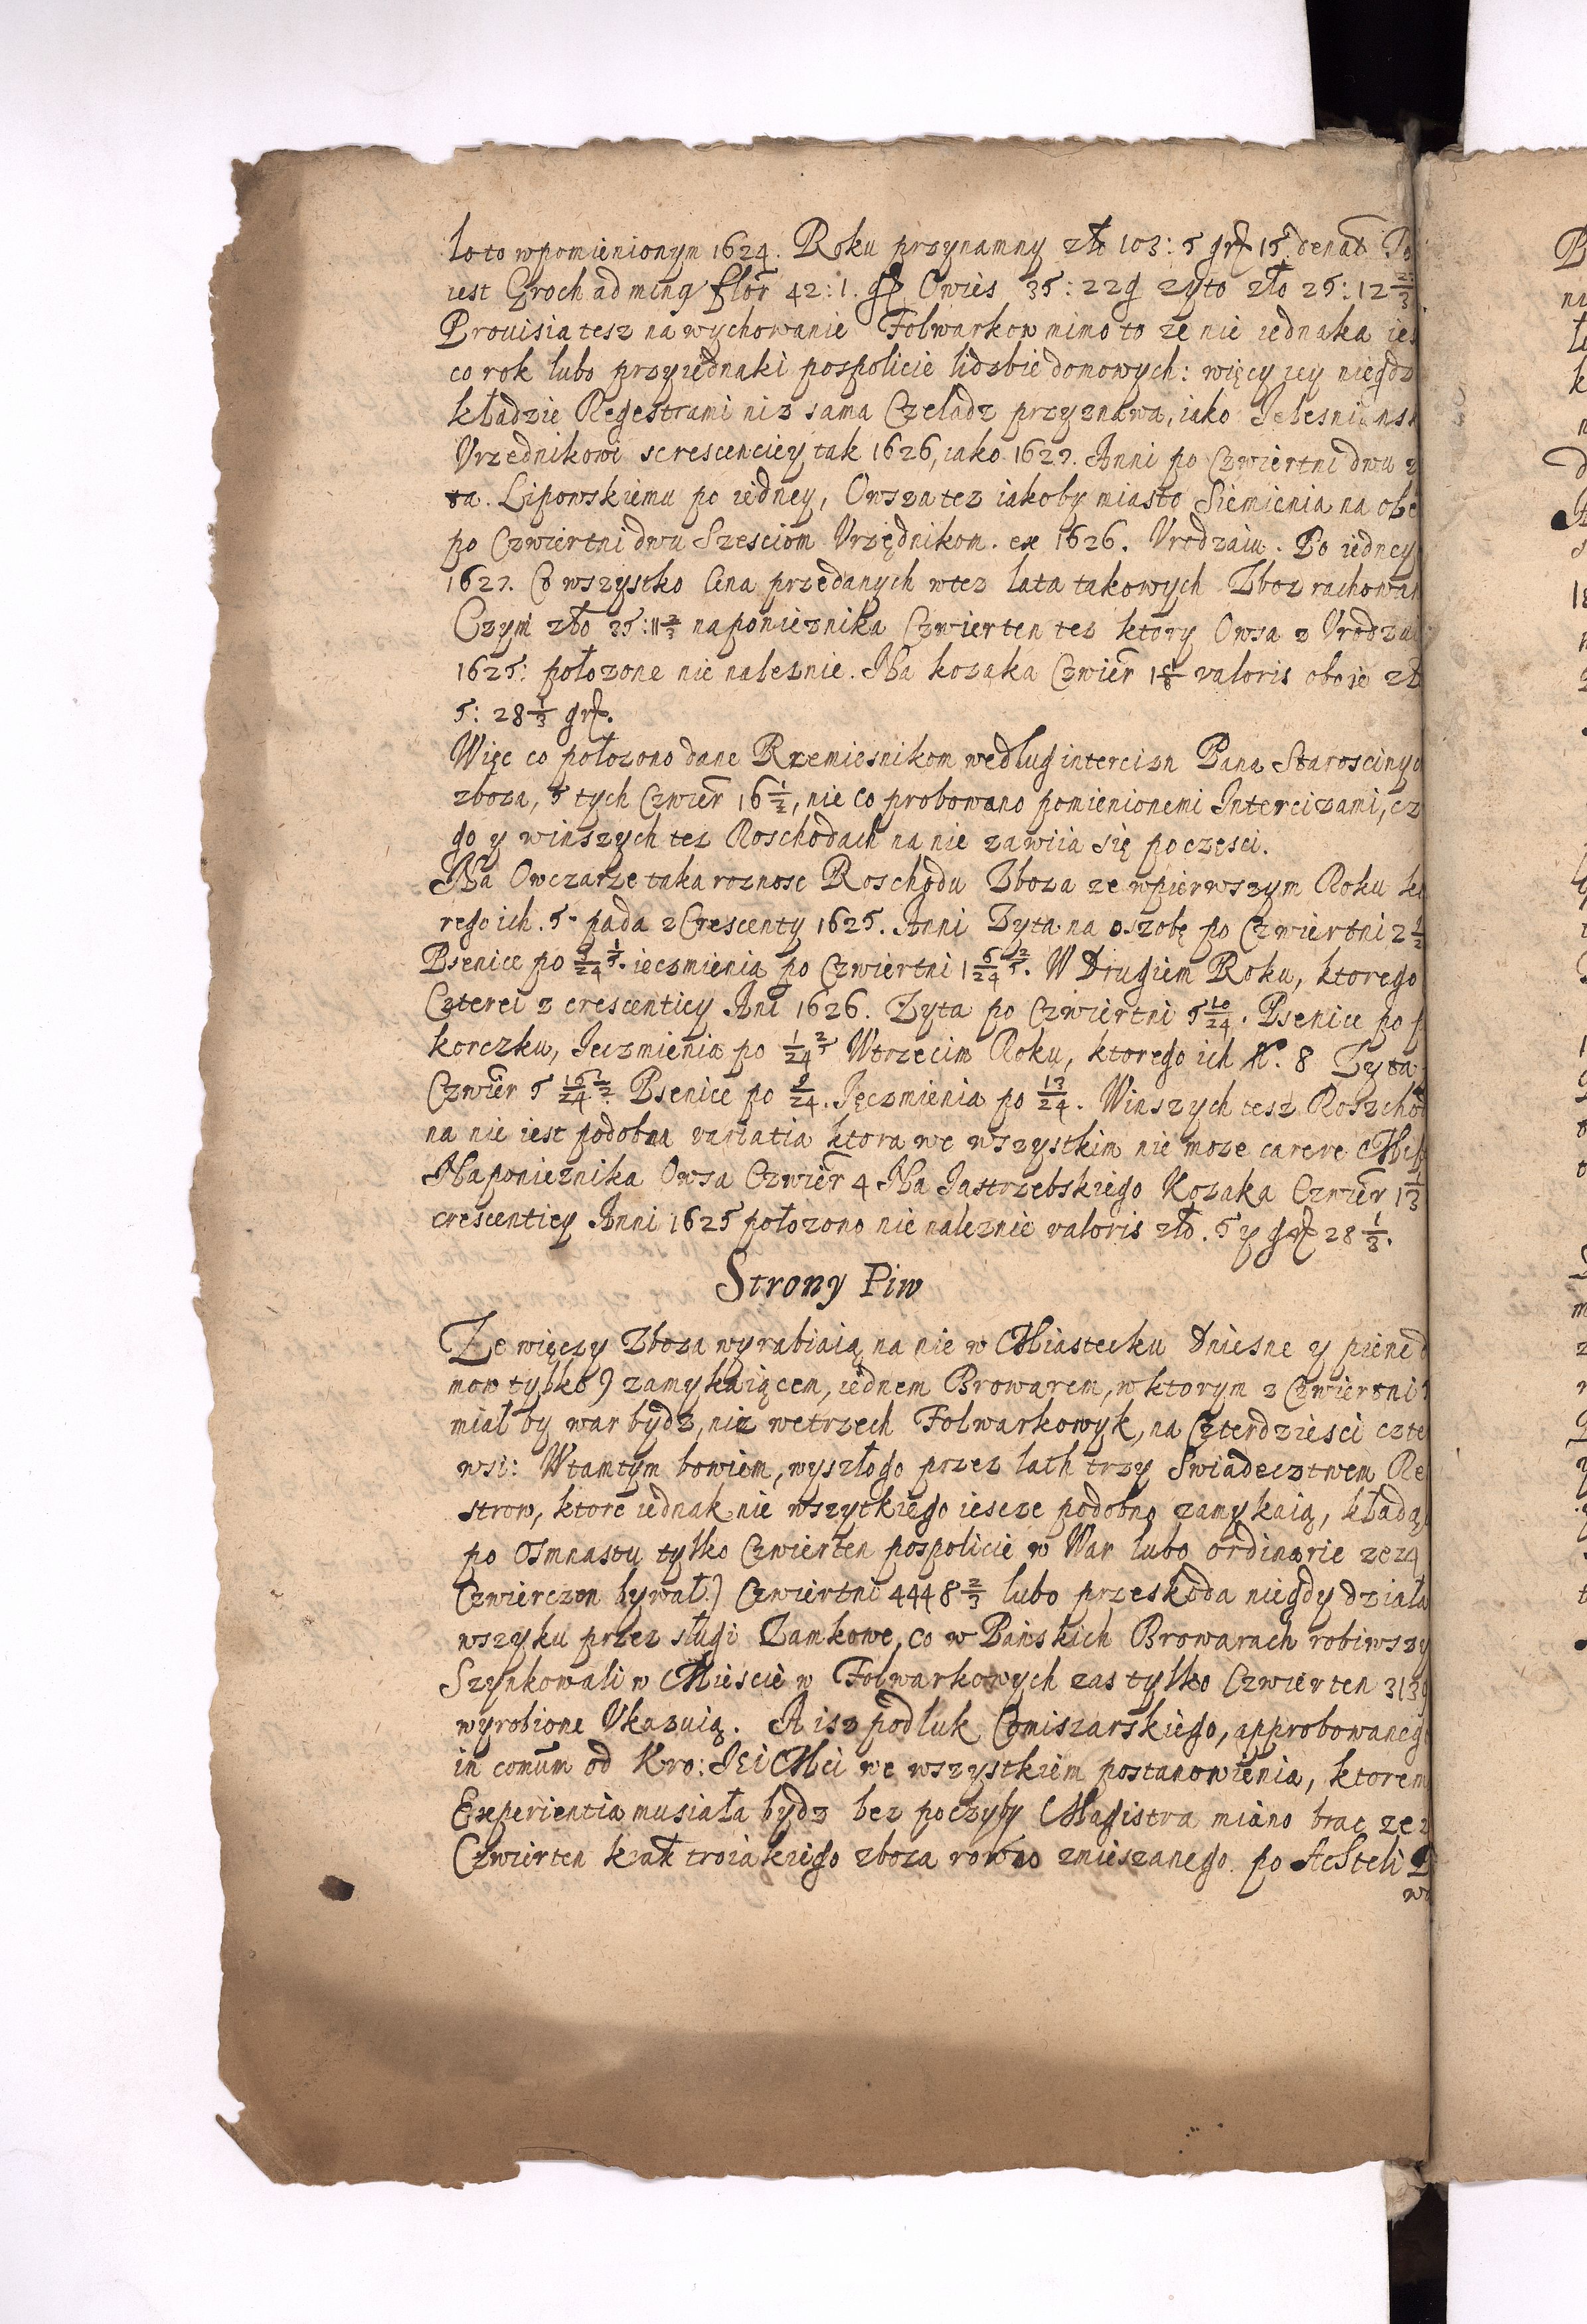 loto wpomienionym 1624. Roku przynamny zło 103: 5 gr 15 denar
iest Groch ad ming flor 42: 1. gr Owies 35: 22 g zyto zło 25: 12 2/3
Prouisia tesz na wychowanie Folwarkow mimo to ze nie iednaka ies
co rok lubo przyiednaki pospolicie lidzbie domowych: więcy iey niegdz
kładzie Regestrami niz sama Czeladz przyznawa, iako
Vrzednikowi screscenciey tak 1626, iako 1627. Anni po Czwiertni dwu z
ta. Lipowskiemu po iedney, Owsza tez iakoby miasto Siemienia na obe
po Czwiertni dwu Szesciom Vrzędnikom. ex 1626. Vrodzaiu. Po iedney
1627. Co wszystko Cena przedanych wtez lata takowych Zboz rachowan
Czyni zło 35: 11 2/3 naponieznika Czwierten tez ktory Owsa z Vrodzai
1625: położone nie naleznie. Na kozaka Czwier 1 1/8 valoris oboie zł
5: 28 1/3 gr.
Więc co położono dane Rzemiesnikom według intercizn Pana Starosciny
zboza, 5 tych Czwier 16 1/2, nie co probowano pomienionemi Intercizami, cz
go y winszych tez Roschodach na nie zawiia się po części.
Na Owczarze taka roznosc Roschodu Zboza ze wpierwszym Roku kt
rego ich. 5 pada z Crescenty 1625. Anni Zyta na oszobę po Czwiertni 2 1/2
Psenice po 9/24 1/5. ieczmienia po Czwiertni 1 6/24 2/5. W Drugiem Roku, ktorego
Czterei z crescenticy Ani 1626. Zyta po Czwiertni 5 10/24. Psenice po p
korczku, Ieczmienia po 1/24 2/5 Wtrzecim Roku, ktorego ich N. 8 Zyta
Czwier 5 15/24 1/2 Psenice po 9/24. Ięczmienia po 13/24. Winszych tesz Roszchod
na nie iest podobna variatia ktora we wszystkim nie moze carere
Naponieznika Owsa Czwier 4 Na Iastrzebskiego Kozaka Czwier 1 1/3
crescenticy Anni 1625 położono nie naleznie valoris zło. 5 y gr 28 1/3.
Strony Piw
Ze więczy Zboza wyrabiaią na nie w Miastecku Dniesne y piene d
mow tylko) zamykaiącem, iednem Browarem, w ktorym z Czwiertni
miał by war bydz, niz wetrzech Folwarkowyk, na Czterdziesci czte
wsi: Wtamtym bowiem, wyszłego przez lath trzy Swiadecztwem Re
strow, ktore iednak nie wszytkiego iescze podobno zamykaią, kładąc
po Osmnastu tylko Czwierten pospolicie w War lubo ordinarie ze 24
Czwierczen bywał) Czwiertni 4448 2/3 lubo przeskoda niegdy działa
wszyku przez sługi Zamkowe, co w Pańskich Browarach robiwszy
Szynkowali w Miescie w Folwarkowych zas tylko Czwierten 3139
wyrobione Vkazuią. A isz podluk Comiszarskiego, approbowaneg
in comum od Kro: Iei Mci we wszystkiem postanowienia, ktorem
Experientia musiała bydz bez poczyby Magistra miano brac ze z
Czwierten kzał troiakiego zboza rowno zmieszanego po Achteli